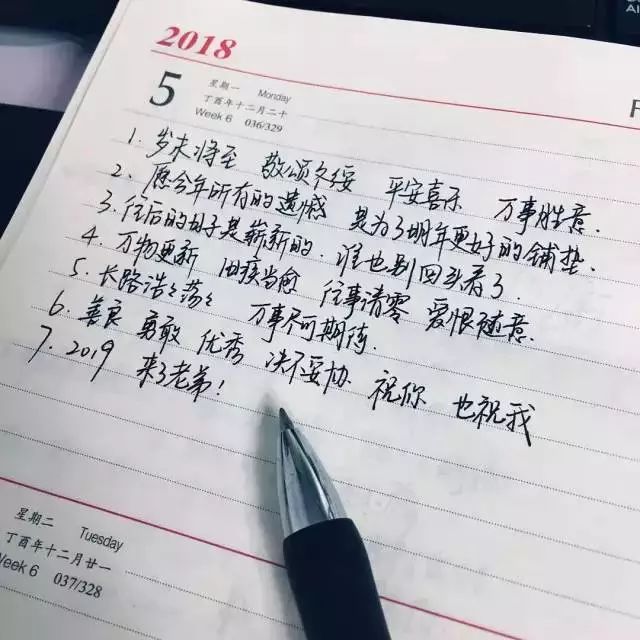 Al
2018
F
5
星期一 Monday
丁酉年十二月二十
Week 6 036/329
1. 岁末将至 敬颂冬绥 平安喜乐 万事胜意.
2. 愿今年所有的遗憾 是为了明年更好的铺垫.
3. 往后的日子是崭新的. 谁也别回头看了.
4. 万物更新 旧疾当愈 往事清零 爱恨随意.
5. 长路浩々荡々 万事尽可期待.
6. 善良 勇敢 优秀 决不妥协 祝你 也祝我
7. 2019 来了老弟!
星期二 Tuesday
丁酉年十二月廿一
Week 6 037/328